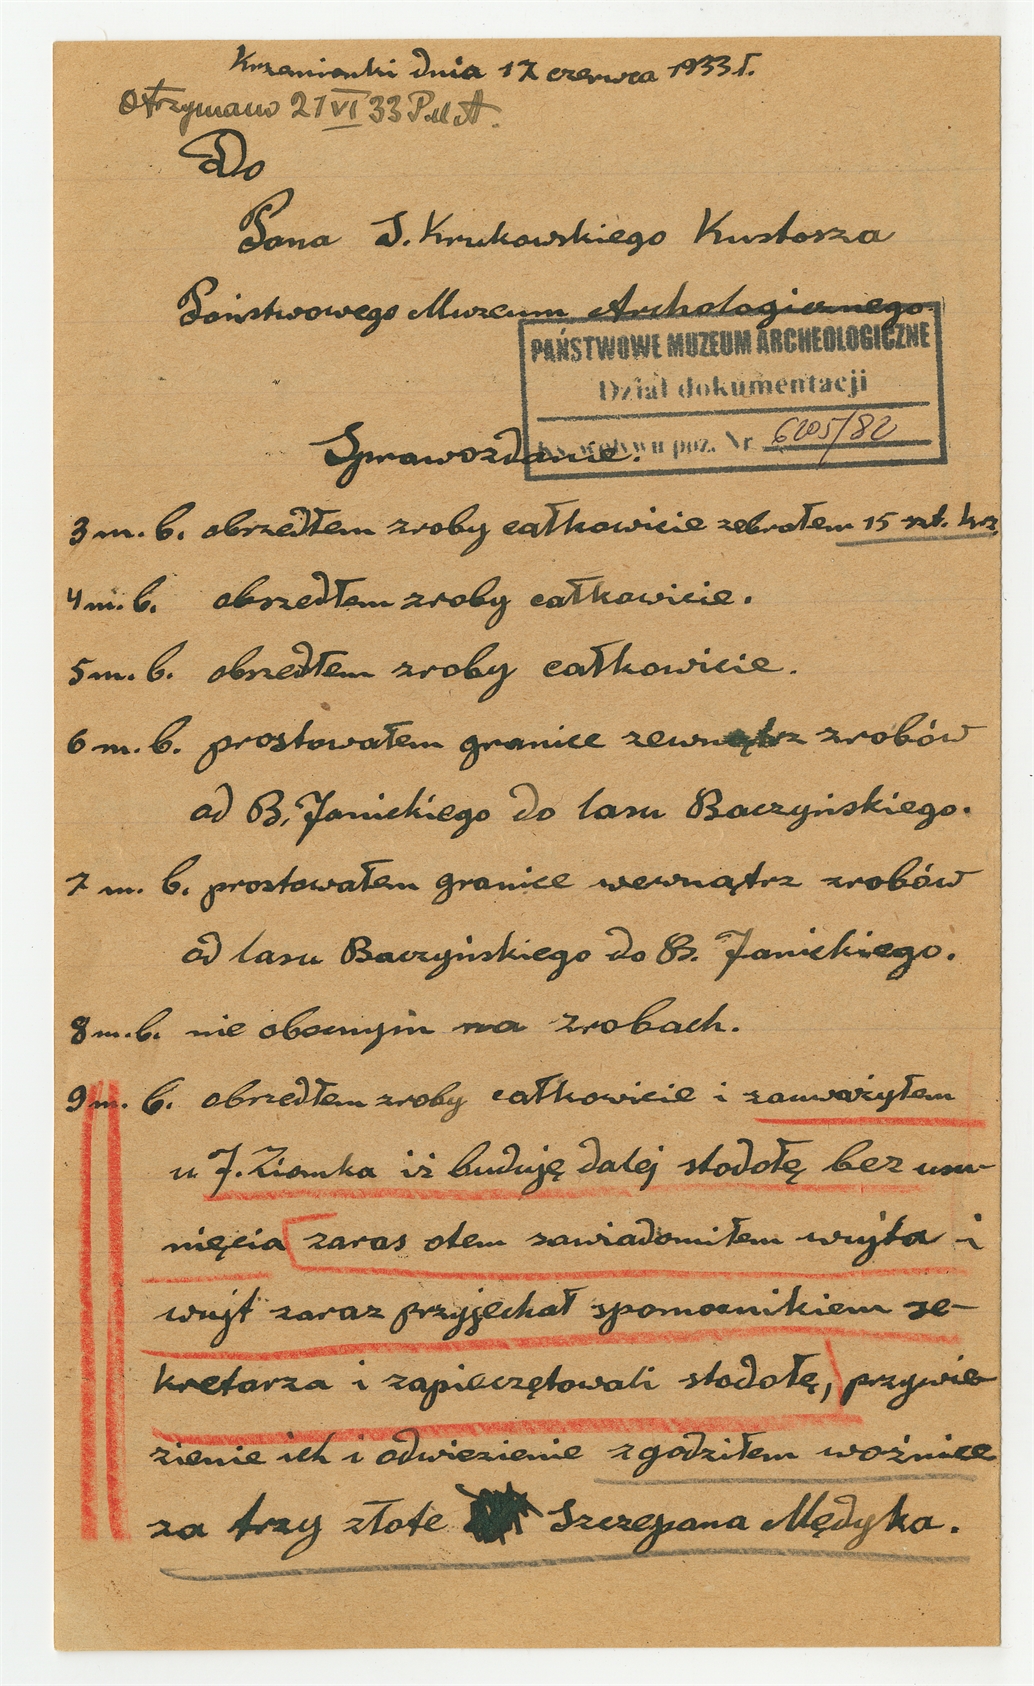 Krzemionki dnia 17 czerwca 1933 r.
Otrzymano 21 VI 33 P.M.A.
Do
Pana S. Krukowskiego Kustosza
Państwowego Muzeum Archologicznego
PAŃSTWOWE MUZEUM ARCHEOLOGICZNE
Dział dokumentacji
poz. Nr 6205/82
Sprawozdanie.
3 m. b. obrzedłem zroby całkowicie zebrałem 15 szt. krz.
4 m. b. obszedłem zroby całkowicie.
5 m. b. obszedłem zroby całkowicie.
6 m. b. prostowałem granice zewnątrz zrobów
od B. Janickiego do lasu Baczyńskiego.
7 m. b. prostowałem granice wewnątrz zrobów
od lasu Baczyńskiego do B. Janickiego.
8 m. b. nie obecnym na zrobach.
9 m. b. obrzedłem zroby całkowicie i zauważyłem
u J. Ziomka iż buduję dalej stodołę bez usu-
nięcia zaras otem zawiadomiłem wujta i
wujt zaraz przyjechał spomocnikiem se-
kretarza i zapieczętowali stodołę, przywie-
zienie ich i odwiezienie zgodziłem woźnice
za trzy złote Szczepana Mędyka.